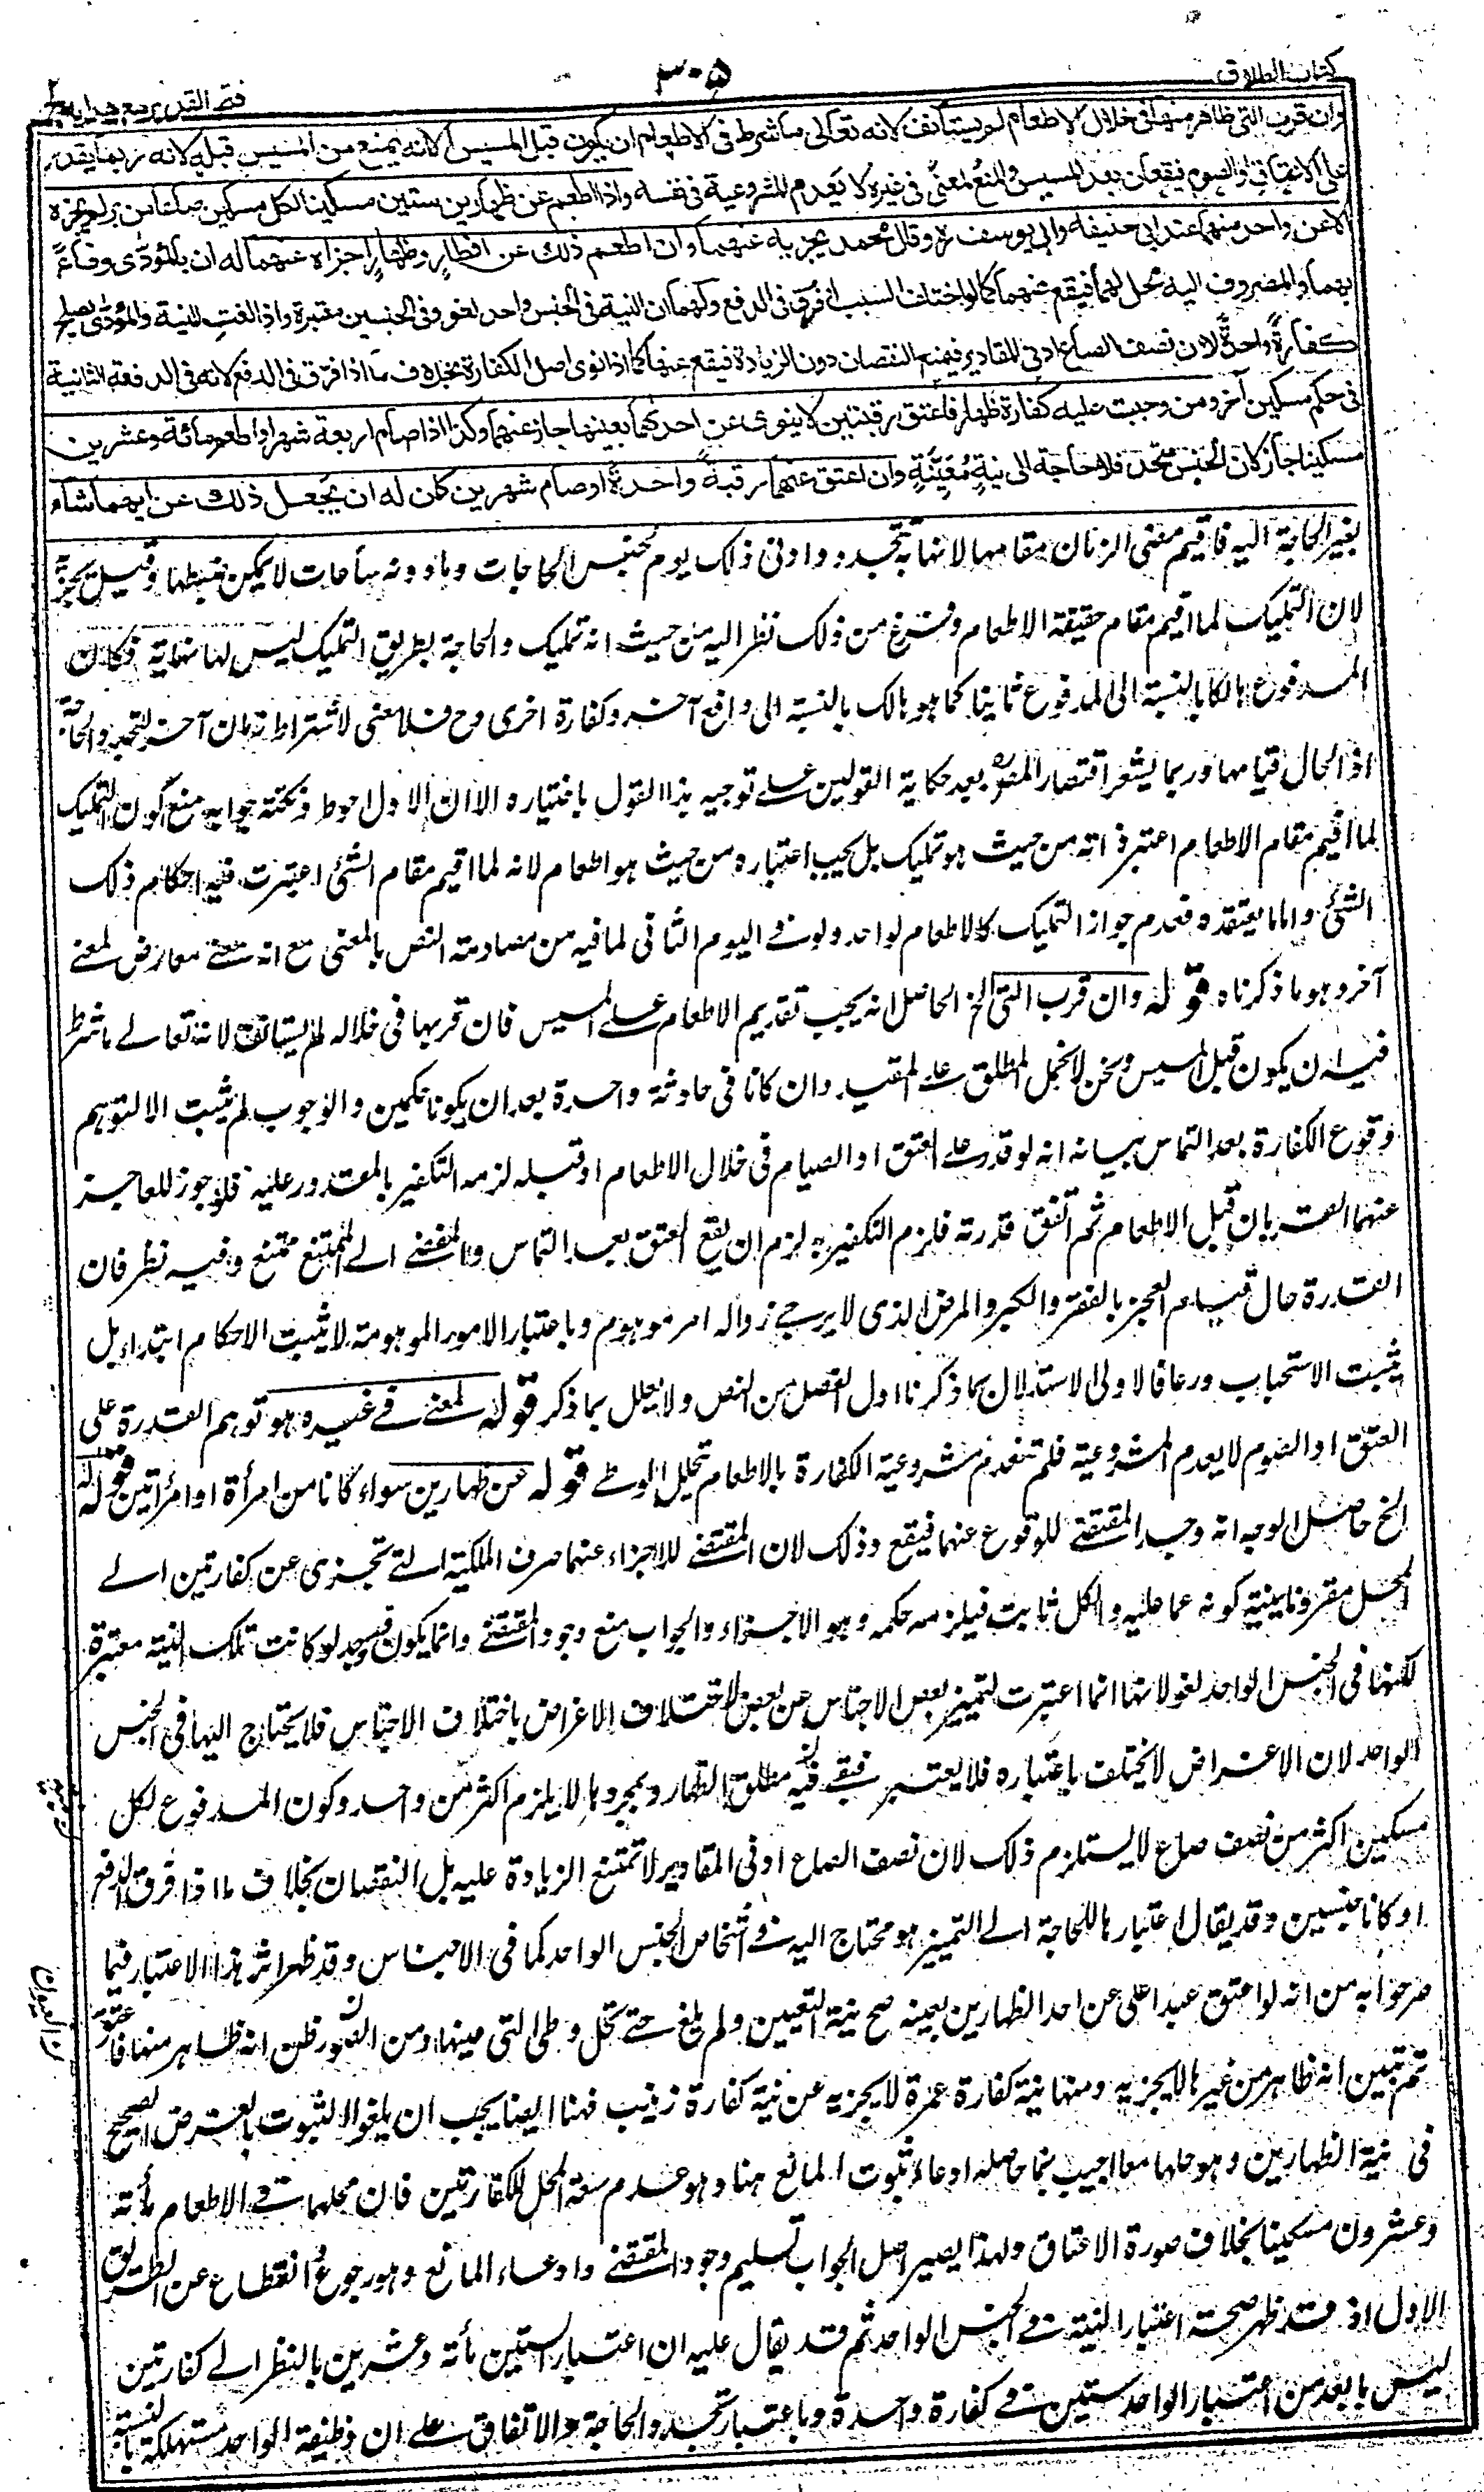 كتاب الطلاق
٣٠٥
فتح القدير مع هدايه
وان قرب التي ظاهر منها في خلال الاطعام لم يستأنف لانه تعالى ما شرط في الاطعام ان يكون قبل المسيس الا انه يمنع من المسيس قبله لانه ربما يقدر
على الاعتاق او الصوم فيقعان بعد المسيس والمنع لمعنى في غيره لا يعدم المشروعية في نفسه واذا اطعم عن ظهارين ستين مسكينا لكل مسكين صاعا من بر لم يجزه
الا عن واحد منهما عند ابي حنيفة وابي يوسف ره وقال محمد يجزيه عنهما وان اطعم ذلك عن افطار وظهار اجزاه عنهما له ان بالمؤدى وفاءً
بهما والمصروف اليه محل لهما فيقع عنهما كما لو اختلف السبب او فرق في الدفع ولهما ان النية في الجنس واحد لغو وفي الجنسين معتبرة واذا لغت النية والمؤدى يصلح
كفارةً واحدةً لان نصف الصاع ادنى المقادير فيمنع النقصان دون الزيادة فيقع عنها كما اذا نوى اصل الكفارة بخلاف ما اذا فرق في الدفع لانه في الدفعة الثانية
في حكم مسكين آخر ومن وجبت عليه كفارة ظهار فاعتق رقبتين لا ينوى عن احدهما بعينها جاز عنهما وكذا اذا صام اربعة شهرا او اطعم مائة وعشرين
مسكينا جاز لان الجنس متحد فلا حاجة الى نيةٍ مُعَيَّنَةٍ وان اعتق عنهما رقبةً واحدةً او صام شهرين كان له ان يجعل ذلك عن ايهما شاء
بغير الحاجة اليه فاقيم مضى الزمان مقامها لانها به تتجدد وادنى ذلك يوم لجنس الحاجات وما دونه ساعات لا يمكن ضبطها وقيل يجزيه
لان التمليك لما اقيم مقام حقيقة الاطعام وفرغ من ذلك نظر اليه من حيث انه تمليك والحاجة بطريق التمليك ليس لها نهاية فكان
المدفوع هالكا بالنسبة الى المدفوع ثانيا كما هو هالك بالنسبة الى دافع آخر وكفارة اخرى وح فلا معنى لاشتراط زمان آخر لتجدد الحاجة
اذ الحال قيامها وربما يشعر اقتصار المص ره بعد حكاية القولين على توجيه هذا القول باختياره الا ان الاول احوط ونكتة جوابه منع كون التمليك
لما اقيم مقام الاطعام اعتبر ذاته من حيث هو تمليك بل يجب اعتباره من حيث هو اطعام لانه لما اقيم مقام الشئ اعتبرت فيه احكام ذلك
الشئ واما ما يعتقده فعدم جواز التمليك كالاطعام لواحد ولو في اليوم الثاني لما فيه من مصادمة النص بالمعنى مع انه معنى معارض لمعنى
آخر وهو ما ذكرناه قوله وان قرب التي الخ الحاصل انه يجب تقديم الاطعام على المسيس فان قربها في خلاله لم يستانف لانه تعالى ما شرط
فيه ان يكون قبل المسيس ونحن لا نحمل المطلق على المقيد وان كانا في حادثة واحدة بعد ان يكونا حكمين والوجوب لم يثبت الا لتوهم
وقوع الكفارة بعد التماس بيانه انه لو قدر على العتق او الصيام في خلال الاطعام او قبله لزمه التكفير بالمقدور عليه فلو جوز للعاجز
عنهما القربان قبل الاطعام ثم اتفق قدرته فلزم التكفير به لزم ان يقع العتق بعد التماس والمفضى الى الممتنع ممتنع وفيه نظر فان
القدرة حال قيام العجز بالفقر والكبر والمرض الذى لا يرجى زواله امر موهوم وباعتبار الامور الموهومة لا يثبت الاحكام ابتداء بل
يثبت الاستحباب ورعا فالاولى الاستدلال بما ذكرنا اول الفصل من النص ولا يعلل بما ذكر قوله لمعنى في غيره هو توهم القدرة على
العتق او الصوم لا يعدم المشروعية فلم تنعدم مشروعية الكفارة بالاطعام تحلل الوطئ قوله عن ظهارين سواء كانا من امرأة او امرأتين قوله له
الخ حاصل الوجه انه وجد المقتضى للوقوع عنهما فيقع وذلك لان المقتضى للاجزاء عنهما صرف الملكية التي تجزى عن كفارتين الى
المحل مقرونا بنية كونه عما عليه والكل ثابت فيلزمه حكمه وهو الاجزاء والجواب منع وجود المقتضى وانما يكون فيوجد لو كانت تلك النية معتبرة
لكنها في الجنس الواحد لغو لانها انما اعتبرت لتمييز بعض الاجناس عن بعض لاختلاف الاغراض باختلاف الاجناس فلا يحتاج اليها في الجنس
الواحد لان الاغراض لا يختلف باعتباره فلا يعتبر فبقى فيه مطلق الظهار وبمجردها لا يلزم اكثر من واحد وكون المدفوع لكل
مسكين اكثر من نصف صاع لا يستلزم ذلك لان نصف الصاع ادنى المقادير لا تمتنع الزيادة عليه بل النقصان بخلاف ما اذا فرق الدفع
او كانا جنسين وقد يقال اعتبارها للحاجة الى التمييز هو محتاج اليه في اشخاص الجنس الواحد كما في الاجناس وقد ظهر اثر هذا الاعتبار فيما
صرحوا به من انه لو اعتق عبدا على عن احد الظهارين بعينه صح نية التعيين ولم يلغ حتى تحل وطى التي عينها ومن الصور ظن انه ظاهر منها فاعتق
ثم تبين انه ظاهر من غيرها لا يجزيه ومنها نية كفارة عمرة لا يجزيه عن نية كفارة زينب فهنا ايضا يجب ان يلغو الا لثبوت الغرض الصحيح
في نية الظهارين وهو حلهما معا اجيب بما حاصله ادعاء ثبوت المانع هنا وهو عدم سعة المحل للكفارتين فان محلهما في الاطعام مأته
وعشرون مسكينا بخلاف صورة الاعتاق ولهذا يصير اصل الجواب تسليم وجود المقتضى وادعاء المانع وهو رجوع وانقطاع عن الطريق
الاول اذ قد ظهر صحة اعتبار النية في الجنس الواحد ثم قد يقال عليه ان اعتبار الستين مأته وعشرين بالنظر الى كفارتين
ليس بابعد من اعتبار الواحد ستين في كفارة واحدة وباعتبار تجدد الحاجة والاتفاق على ان وظيفة الواحد مستهلكة بالنسبة